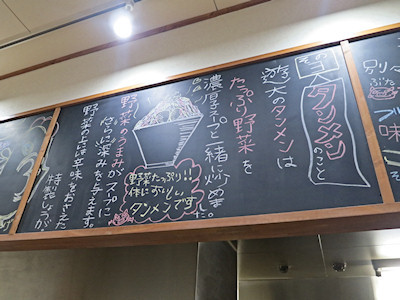 その一
タンメン
のこと
遊大のタンメンは
たっぷり野菜を
濃厚スープと一緒に炒めました。
野菜のうまみがスープに
さらに深みを与えます。
野菜の上には辛味をおさえた
特製しょうが
野菜たっぷり!!
体においしい
タンメンです
別
味